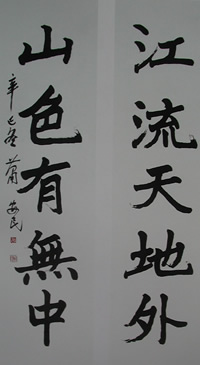 江流天地外
山色有無中
辛巳冬 蕭安民